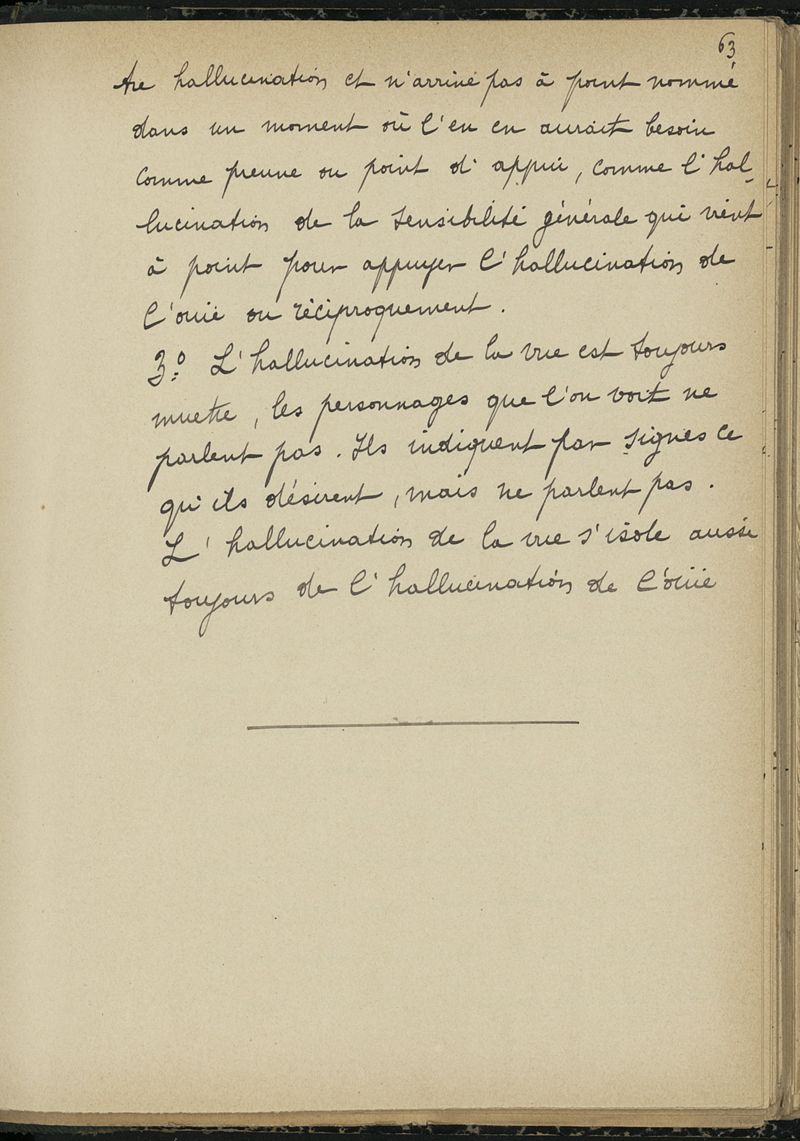 63
tre hallucination et n'arrive pas à point nommé
dans un moment où l'en en aurait besoin
comme preuve ou point d'appui, comme l'hal-
lucination de la sensibilité générale qui vient
à point pour appuyer l'hallucination de
l'ouïe ou réciproquement.
3.º L'hallucination de la vue est toujours
muette, les personnages que l'on voit ne
parlent pas. Ils indiquent par signes ce
qu'ils désirent, mais ne parlent pas.
L'hallucination de la vue s'isole aussi
toujours de l'hallucination de l'ouïe